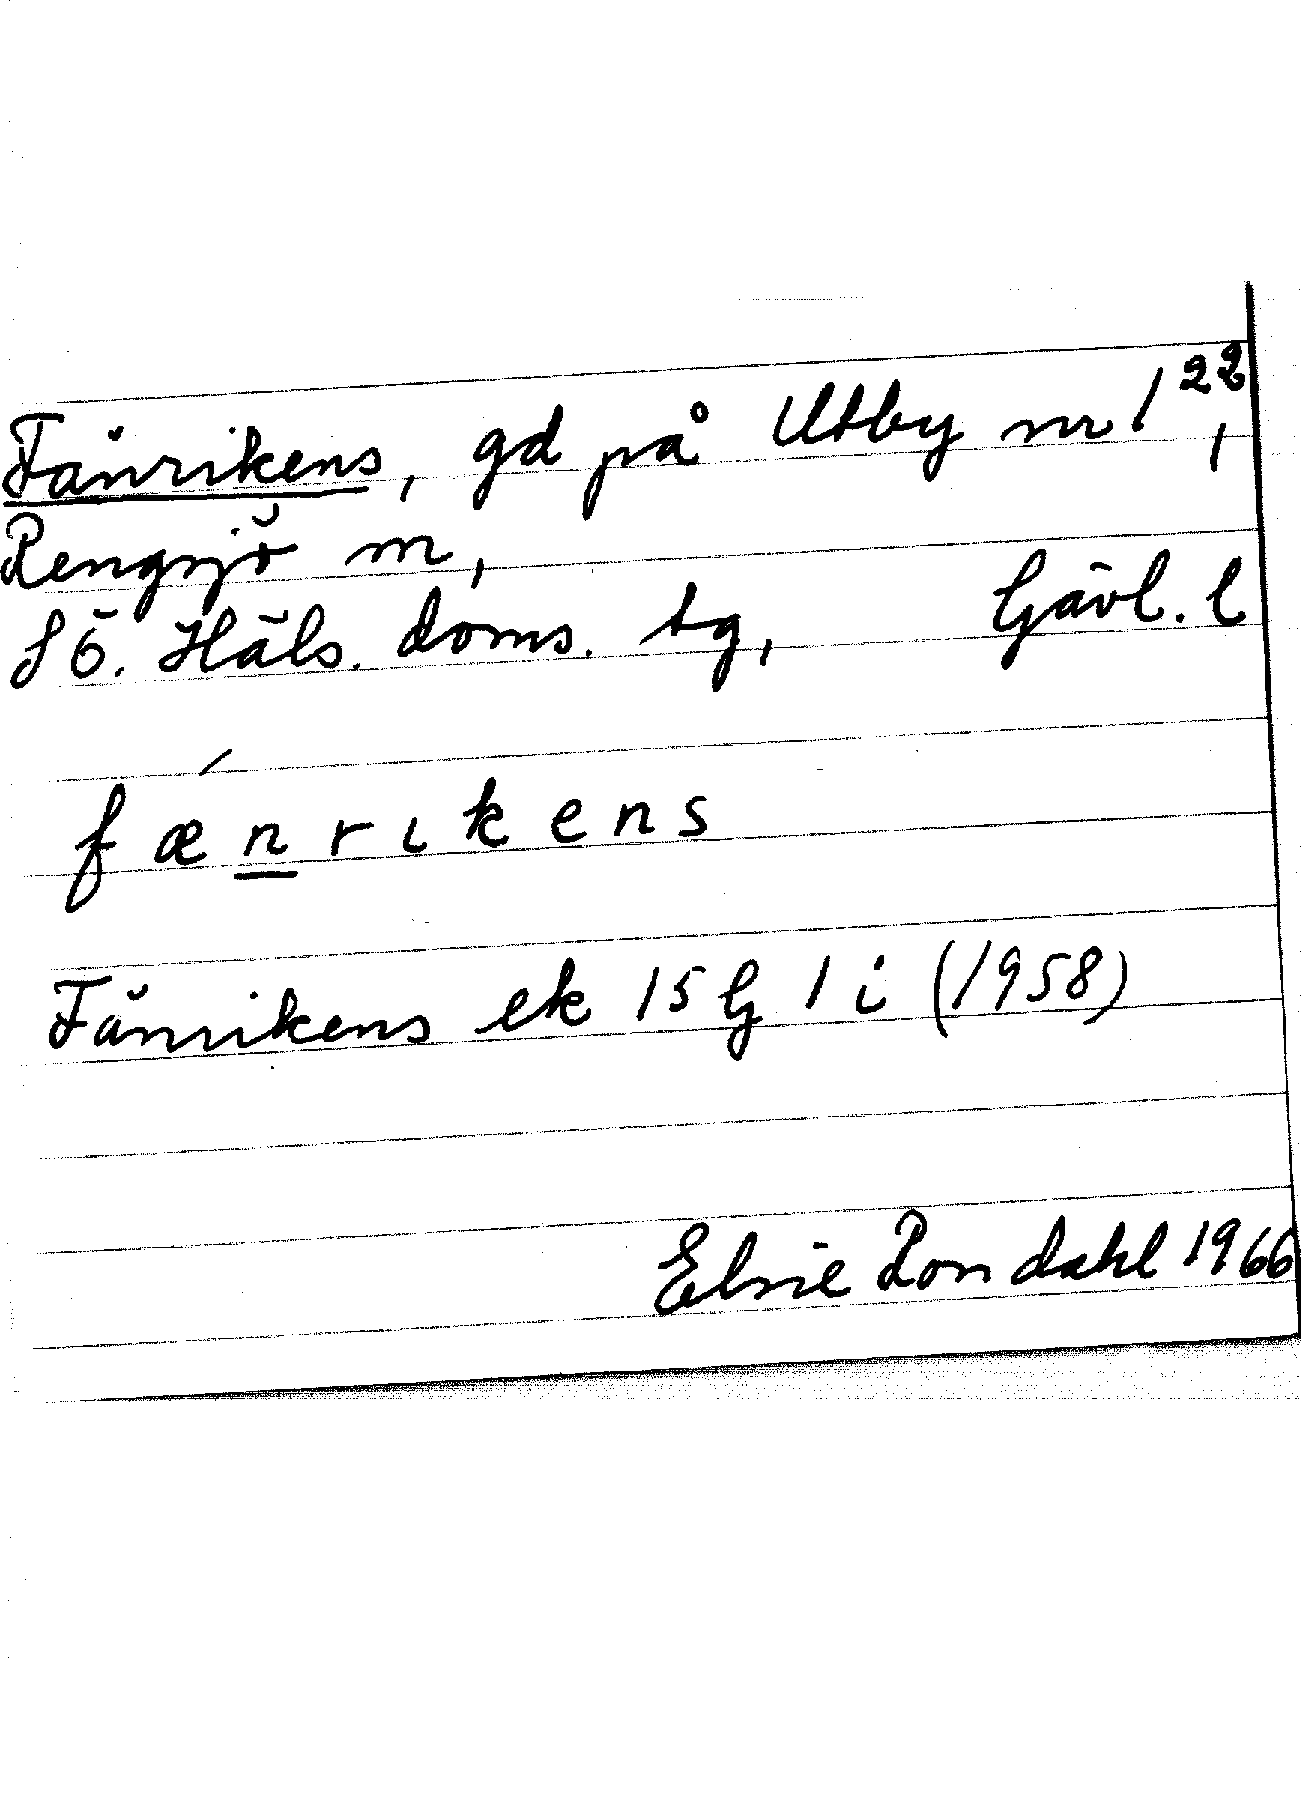 Fänrikens, gd på Utby nr 1²²,
Rengsjö m,
S Ö. Häls. doms. tg, Gävl. l
f æ n r ı k e n s
Fänrikens ek 15 G 1 i (1958)
Elsie Rondahl 1966